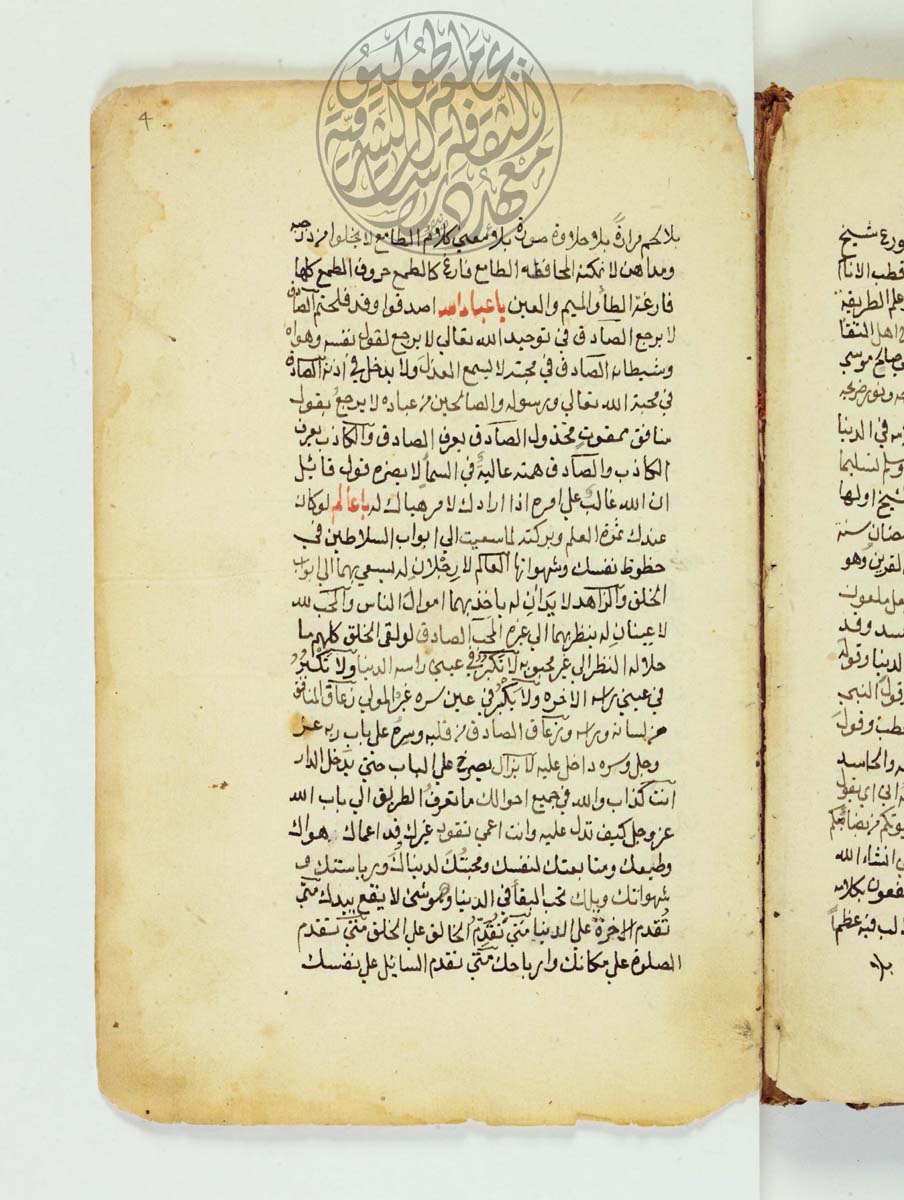 4
بلا لحم مرارة بلا حلاوة صورة بلا معني كلام الطامع لا يخلوا من
ومداهن لا يمكنه المحافظه الطامع فارغ كالطمع حروف الطمع كلها
فارغة الطأ والميم والعين يا عباد الله اصدقوا وقد فلحتم الصادق
لا يرجع الصادق في توحيد الله تعالي لا يرجع لقول نفسه وهواه
وشيطانه الصادق في محبته لا يسمع العذل ولا يدخل في اذنه الصادق
في محبة الله تعالي ورسوله والصالحين من عباده لا يرجع بقول
منافق ممقوت مخذول الصادق يعرف الصادق والكاذب يعرف
الكاذب والصادق همته عالية في السمأ لا يضره قول قائل
ان الله غالب علي امره اذا ارادك لامر هياك له يا عالم لو كان
عندك ثمرة العلم وبركته لما سعيت الي ابواب السلاطين في
حظوظ نفسك وشهواتها العالم لا رجلان له يسعي بهما الي ابواب
الخلق والزاهد لا يدان له ياخذ بهما اموال الناس والمحب لله
لا عينان له ينظر بهما الي غيره المحب الصادق لو لقي الخلق كلهم ما
حلا له النظر الي غير محبوبه لا تكبر في عيني راسه الدنيا ولا تكبر
في عيني راسه الاخره ولا يكبر في عين سره غير المولي زعاق المنافق
من لسانه وراسه وزعاق الصادق من قلبه وسره علي باب ربه عز
وجل وسره داخل عليه لا يزال يصرخ علي الباب حتي يدخل الدار
انت كذاب والله في جميع احوالك ما تعرف الطريق الي باب الله
عز وجل كيف تدل عليه وانت اعمي تقود غيرك قد اعماك هواك
وطبعك ومتابعتك لنفسك ومحبتك لدنياك ورياستك و
شهواتك ويلك تحب البقأ في الدنيا وهو شئ لا يقع بيدك متي
تقدم الاخرة علي الدنيا متي تقدم الخالق علي الخلق متي تقدم
الصلوة علي مكانك وارباحك متي تقدم السايل علي نفسك